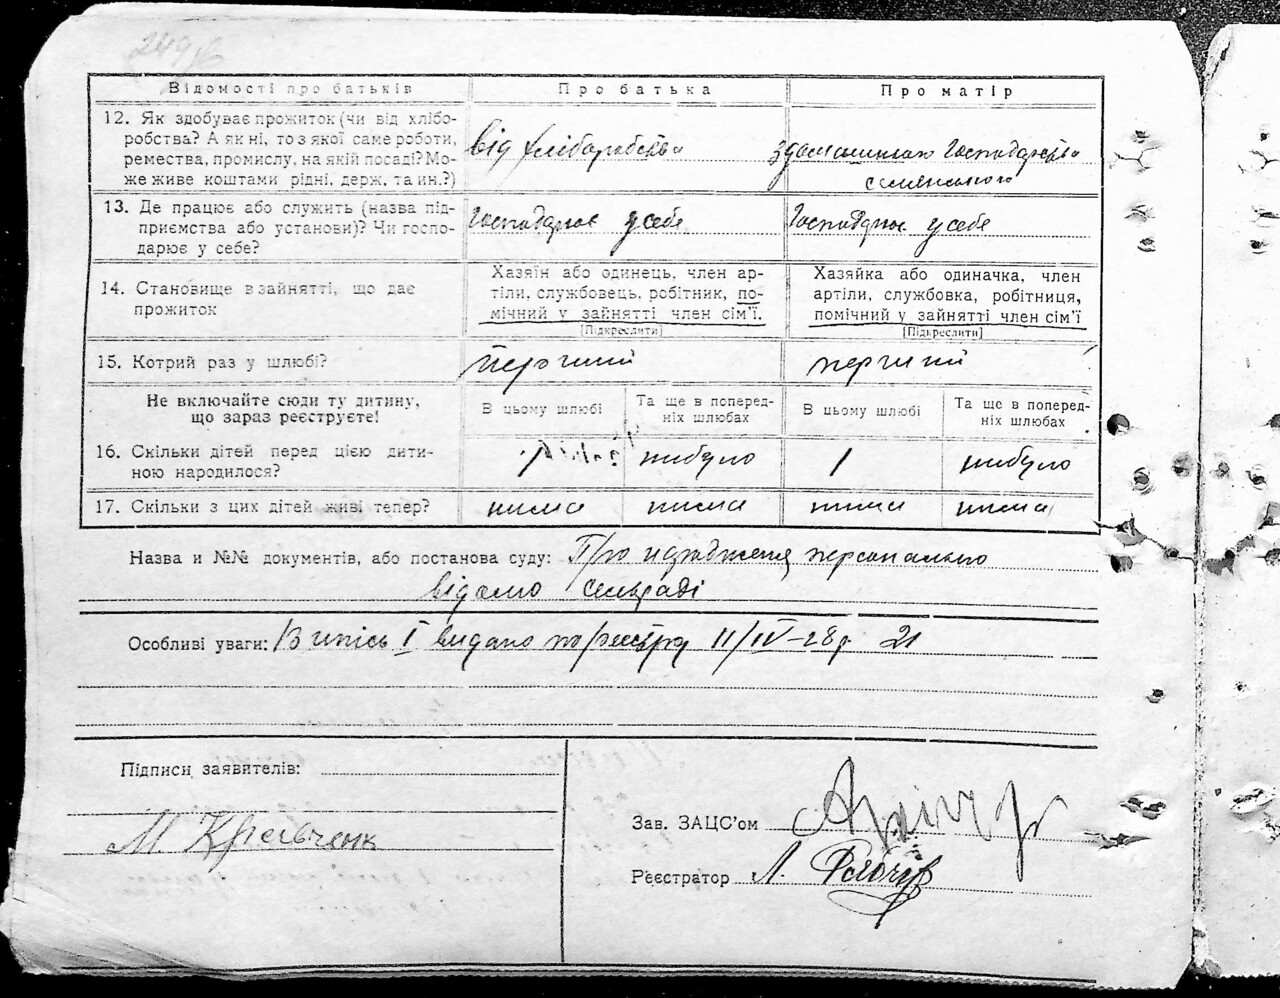 249б
Відомості про батьків Про батька Про матір
12. Як здобуває прожиток (чи від хлібо-
робства? А як ні, то з якої саме роботи,
ремества, промислу, на якій посаді? Мо-
же живе коштами рідні, держ. та ин.?)
від хліборобства
з домашнього господарства
селянського
13. Де працює або служить (назва під-
приємства або установи)? Чи госпо-
дарює у себе?
Господарює у себе
Господарює у себе
14. Становище в зайнятті, що дає
прожиток
Хазяїн або одинець, член ар-
тіли, службовець, робітник, по-
мічний у зайнятті член сім'ї.
[Підкреслити]
Хазяйка або одиначка, член
артіли, службовка, робітниця,
помічний у зайнятті член сім'ї
[Підкреслити]
15. Котрий раз у шлюбі? перший перший
Не включайте сюди ту дитину,
що зараз реєструєте!
В цьому шлюбі
Та ще в поперед-
ніх шлюбах
В цьому шлюбі
Та ще в поперед-
ніх шлюбах
16. Скільки дітей перед цією дити-
ною народилося?
1 небуло 1 небуло
17. Скільки з цих дітей живі тепер? нима нима нима нима
Назва и №№ документів, або постанова суду: Про народження персонально
відомо сельраді
Особливі уваги: Випись I видано по реєстру 11/IV-28 р 21
Підписи заявителів:
М. Кравченк
Зав. ЗАЦС'ом
Реєстратор Л.